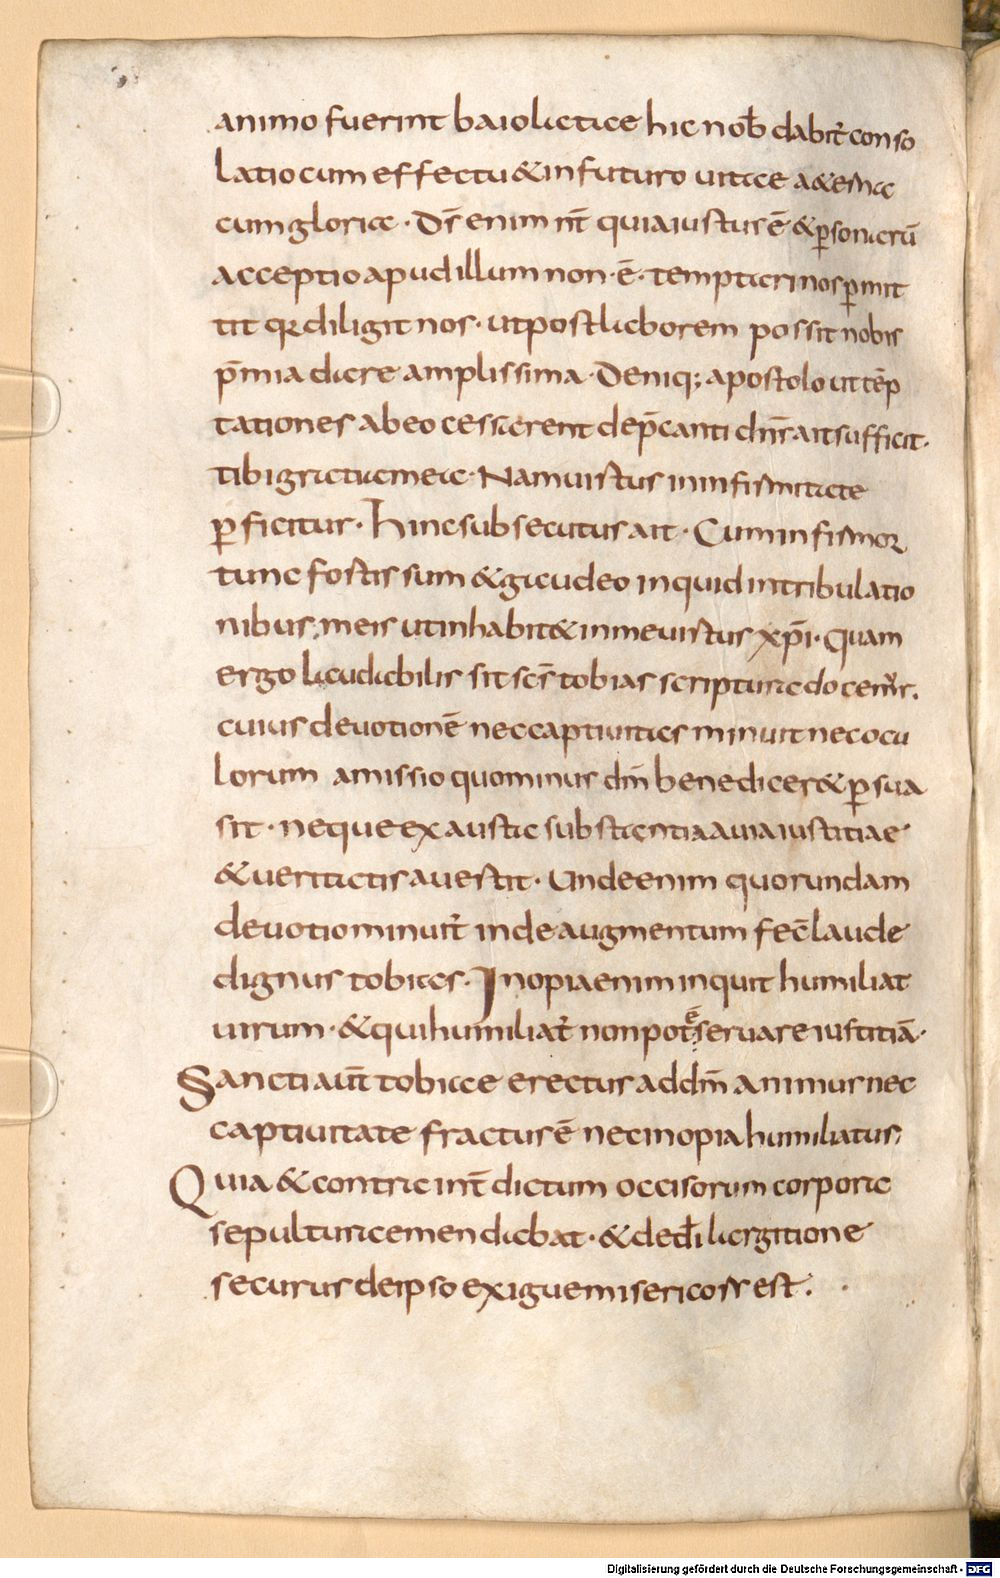 animo fuerint baiolatae hic nob̄ dabit᷒ conso
latio cum effectu & in futuro uitae aeternae
cum gloria · Ds̄ enim nr̄ quia iustus ē & ꝑsonarū
acceptio apud illum non · ē · temptari nos ꝑmit
tit qr̄ diligit nos · ut post laborem possit nobis
p̄mia dare amplissima · Deniq; apostolo ut tēp
tationes ab eo cessarent dep̄canti dn̄s ait sufficit ·
tibi gratia mea · Nam uirtus in infirmitate
ꝑficitur · Hinc subsecutus ait · Cum infirmor
tunc fortis sum & gaudeo inquid in tribulatio
nibus meis ut inhabit& in me uirtus xp̄i · Quam
ergo laudabilis sit scs̄ tobias scriptura docemur.
cuius deuotionē nec captiuitas minuit nec ocu
lorum amissio quominus dm̄ benedicer& ꝑsua
sit · neque exausta substantia a uia iustitiae
& ueritatis auertit · Unde enim quorundam
deuotio minuit᷒ inde augmentum fec̄ laude
dignus tobias · Inopia enim inquit humiliat
uirum · & qui humiliat᷒ non potē seruare iustitiā ·
Sancti aut̄ tobiae erectus ad dm̄ animus nec
captiuitate fractus ē nec inopia humiliatus
Quia & contra int̄dictum occisorum corpora
sepulturae mendabat · & de di̅ largitione
securus de ipso exigue misericors est .